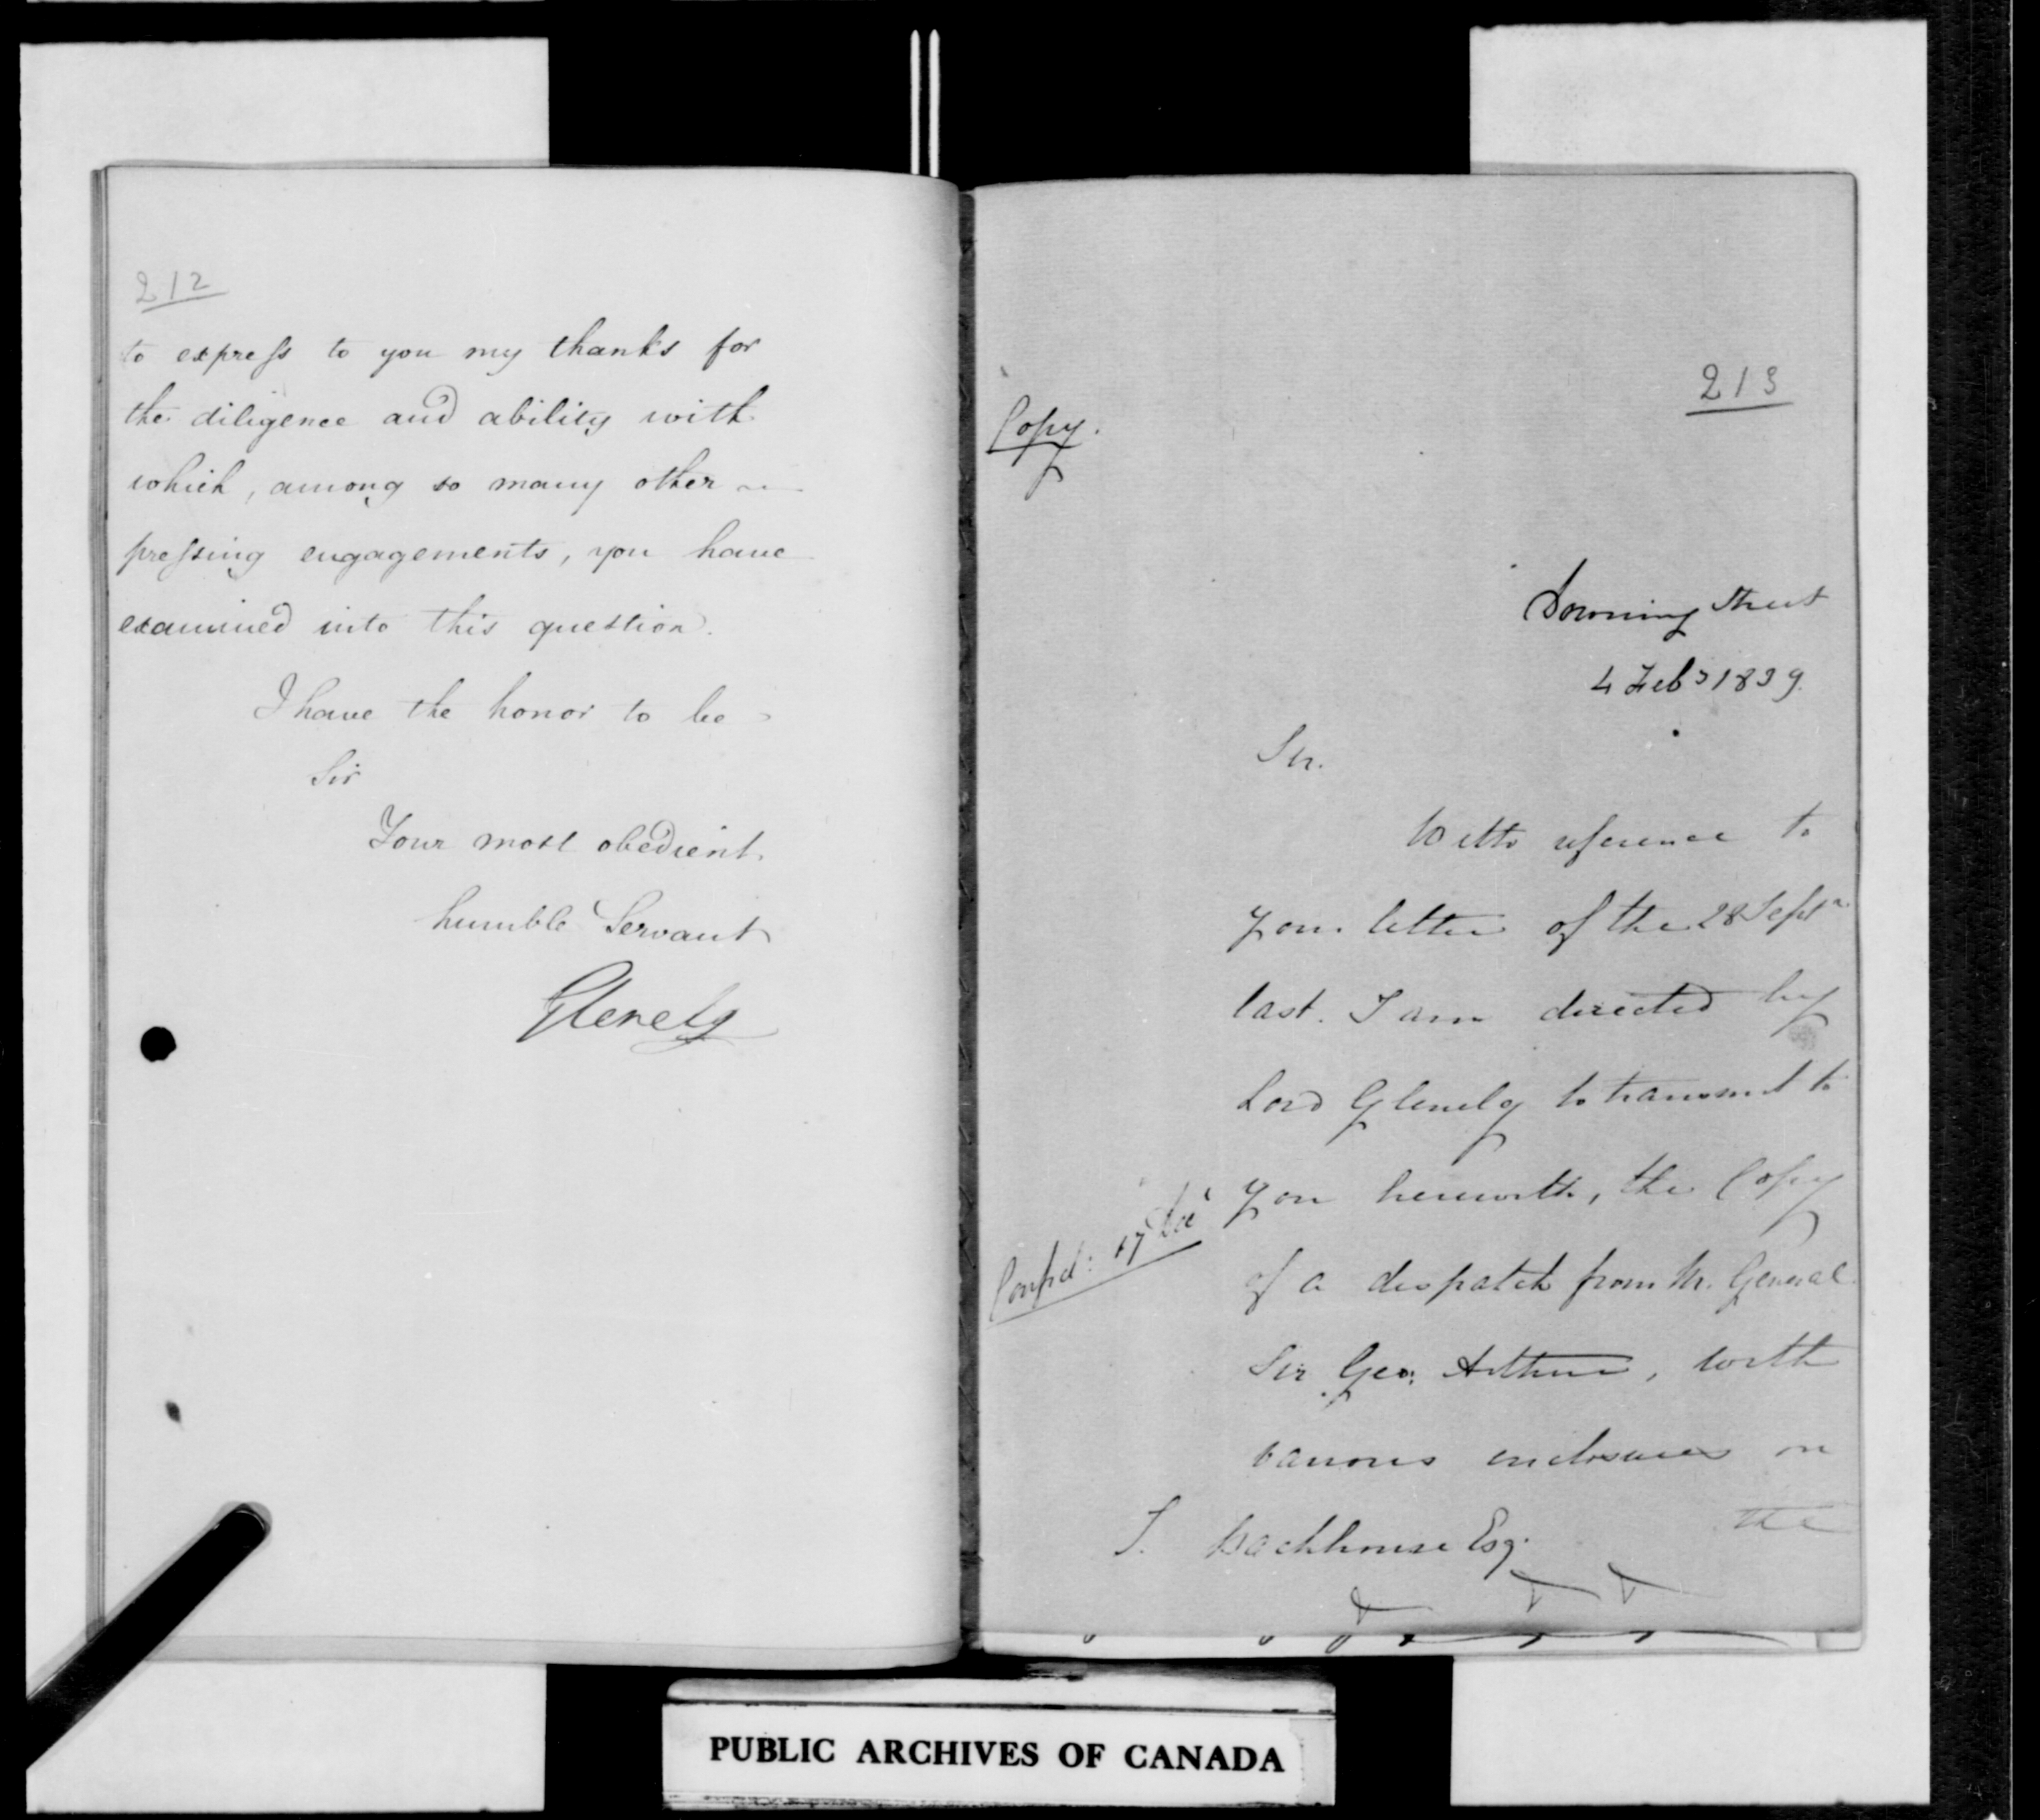 212
to express to you my thanks for
the diligence and ability with
which, among so many other
pressing engagements, you have
examined into this question.
I have the honor to be
Sir
Your most obedient
humble Servant
Glenelg
213
Copy.
Downing Street
4 Feby 1839.
Sir.
With reference to
your letter of the 28 Septr
last. I am directed by
Lord Glenelg to transmit to
Confid: 17 Dec
you herewith, the Copy
of a despatch from M. General
Sir Geo: Arthur, with
various enclosures on
the
J. Backhouse Esq.
PUBLIC ARCHIVES OF CANADA